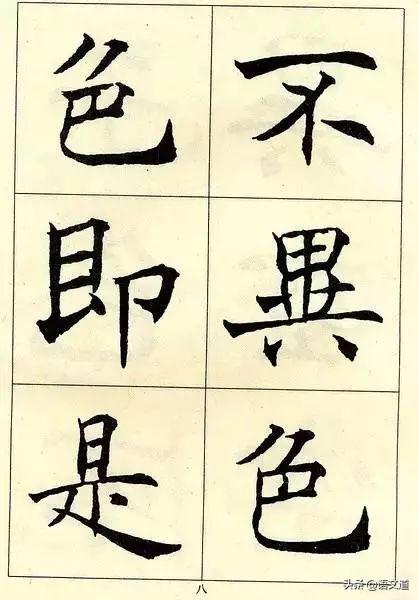 不異色
色即是
八
头条@语文道